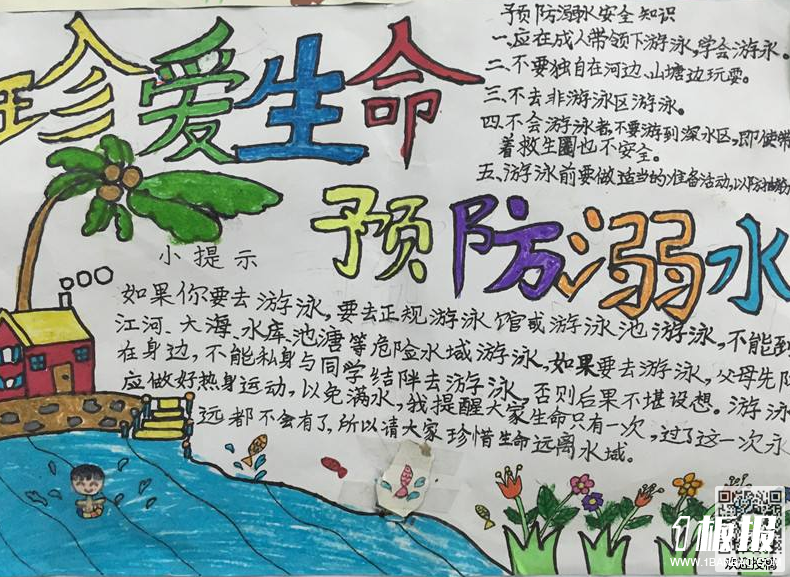 珍爱生命
预防溺水安全知识
一、应在成人带领下游泳,学会游泳。
二、不要独自在河边、山塘边玩耍。
三、不去非游泳区游泳。
四、不会游泳者,不要游到深水区,即使带
着救生圈也不安全。
五、游泳前要做适当的准备活动,以防抽筋
预防溺水
小提示
如果你要去游泳,要去正规游泳馆或游泳池游泳,不能到
江河、大海、水库、池塘等危险水域游泳,如果要去游泳,父母先陪
在身边,不能私身与同学结陴去游泳,否则后果不堪设想。游泳
应做好热身运动,以免满水,我提醒大家生命只有一次,过了这一次永
远都不会有了,所以请大家珍惜生命远离水域。
板报
WWW.1BANBAO.COM
欢迎投稿